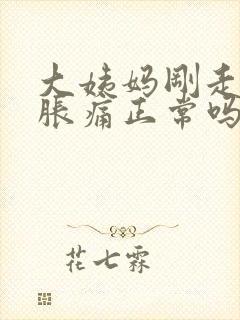 大姨妈刚走
胀痛正常吗
花七霖